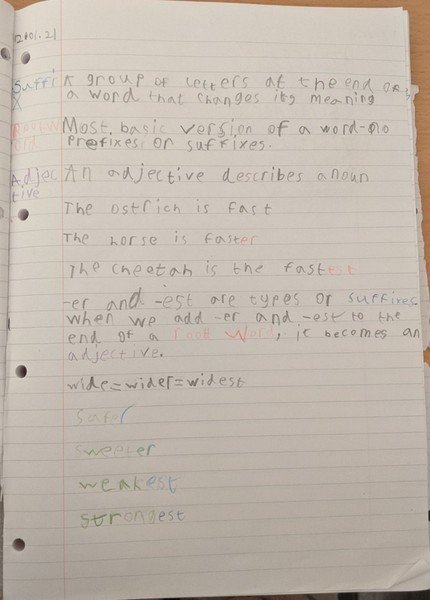 20.01.21
Suffix A group of letters at the end of
a word that changes its meaning
Root word Most basic version of a word-no
prefixes or suffixes.
Adjective An adjective describes a noun
The ostrich is fast
The horse is faster
The cheetah is the fastest
-er and -est are types of suffixes.
when we add -er and -est to the
end of a root word, it becomes an
adjective.
wide=wider=widest
safer
sweeter
weakest
strongest